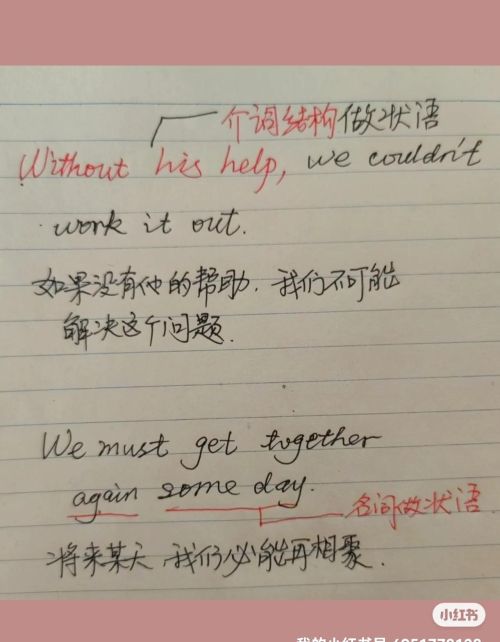 介词结构做状语
Without his help, we couldn't
work it out.
如果没有他的帮助,我们不可能
解决这个问题.
We must get together
again some day.
名词做状语
将来某天,我们必能再相聚.
小红书